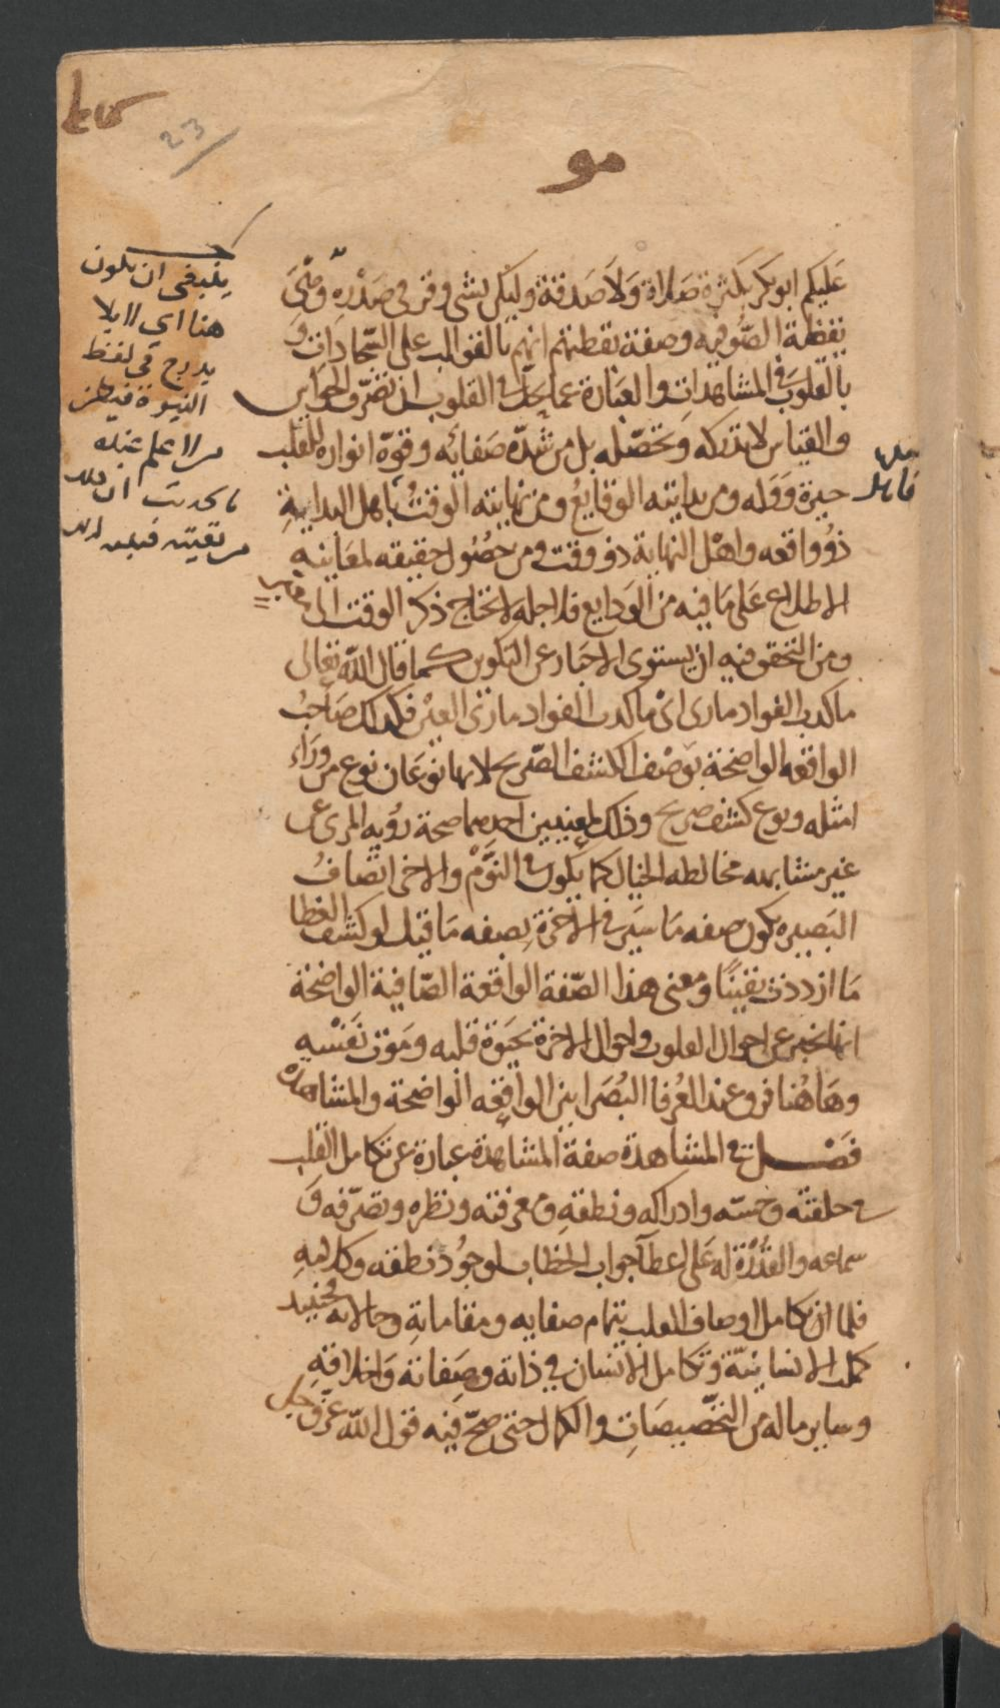 23
مو
عليكم ابو بكر بكثرة صلاة ولا صدقة ولكن بشي وقر في صدره ومتى
يقظة الصوفيه وصفة يقظتهم انهم بالقوالب على السجادات و
بالقلوب في المشاهدات والعبارة عما يحل في القلوب اذ تصرف الحواس
والقياس لا تدركه وتحصله بل من شدة صفائه وقوة انواره للقلب
حيرة ووله ومن بدايته الوقايع ومن نهايته الوقت باهل البداية
ذو واقعه واهل النهاية ذو وقت ومن حصول حقيقه لمعاينه
الاطلاع على ما فيه من الودايع فلاجله لا تحتاج ذكر الوقت الى
ومن التحقق فيه ان يستوي الاخبار عن التكوين كما قال الله تعالى
ما كذب الفواد ما راى اى ما كذب الفواد ما راى العين فكذلك صاحب
الواقعه الواضحة بوصف الكشف الصريح لانها نوعان نوع من وراء
امثله ونوع كشف صريح وذلك لمعنيين احدهما صحة رؤيه المرى عن
غير مشابهه مخالطه الخيال كما يكون في النوم والاخى اتصاف
البصيره بكون صفه ما سيرى في الاخرة بصفه ما قيل لو كشف الغطا
ما ازددت يقينًا ومعنى هذا الصفة الواقعة الصافية الواضحة
انها تخبر عن احوال القلوب واحوال الاخرة بحيوة قلبه وموت نفسه
وهاهنا فروع عند العرفا البصرا بين الواقعه الواضحة والمشاهده
فصل في المشاهدة صفة المشاهدة عبارة عن تكامل القلب
في خلقته وحسه وادراكه ونطقه ومعرفته ونظره وتصرفه و
سماعه والقدرة له على اعطآ جواب الخطاب لوجود نطقه وكلامه
فلما ان تكامل اوصاف القلب بتمام صفايه ومقاماته وحالاته فحينيد
كملت الانسانية وتكامل الانسان في ذاته وصفاته واخلاقه
وساير ماله من التخصيصات والكمال حتى صح فيه قول الله عز وجل
ينبغي ان يكون
هنا اي لا لا
يدرج في لفظ